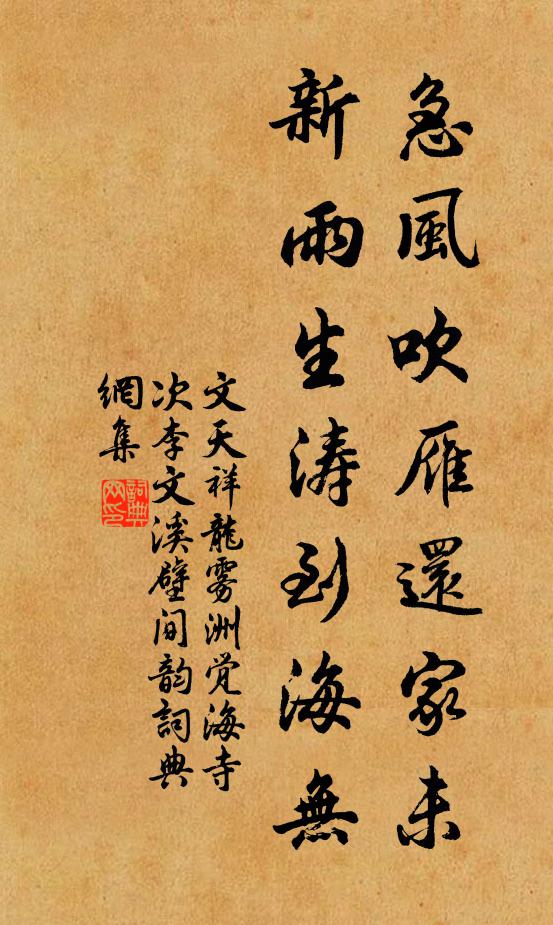 急風吹雁還家未
新雨生濤到海無
文天祥龍雾洲觉海寺
次李文溪壁间韵詞典
網集
詞典網印